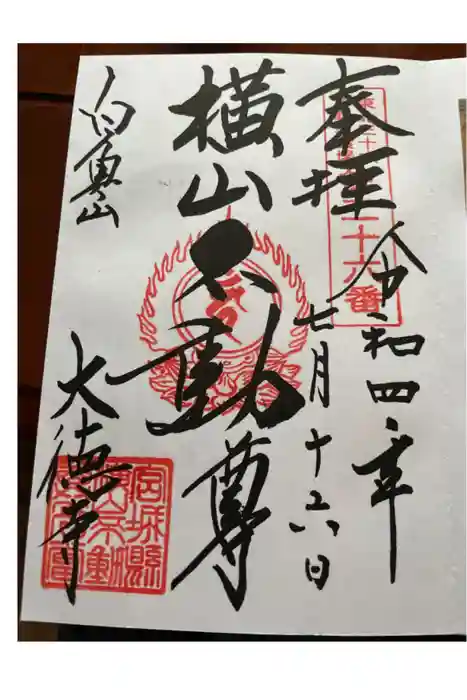 奉拝
令和四年
七月十六日
横山不動尊
白魚山
大徳寺
二十六番
宮城縣